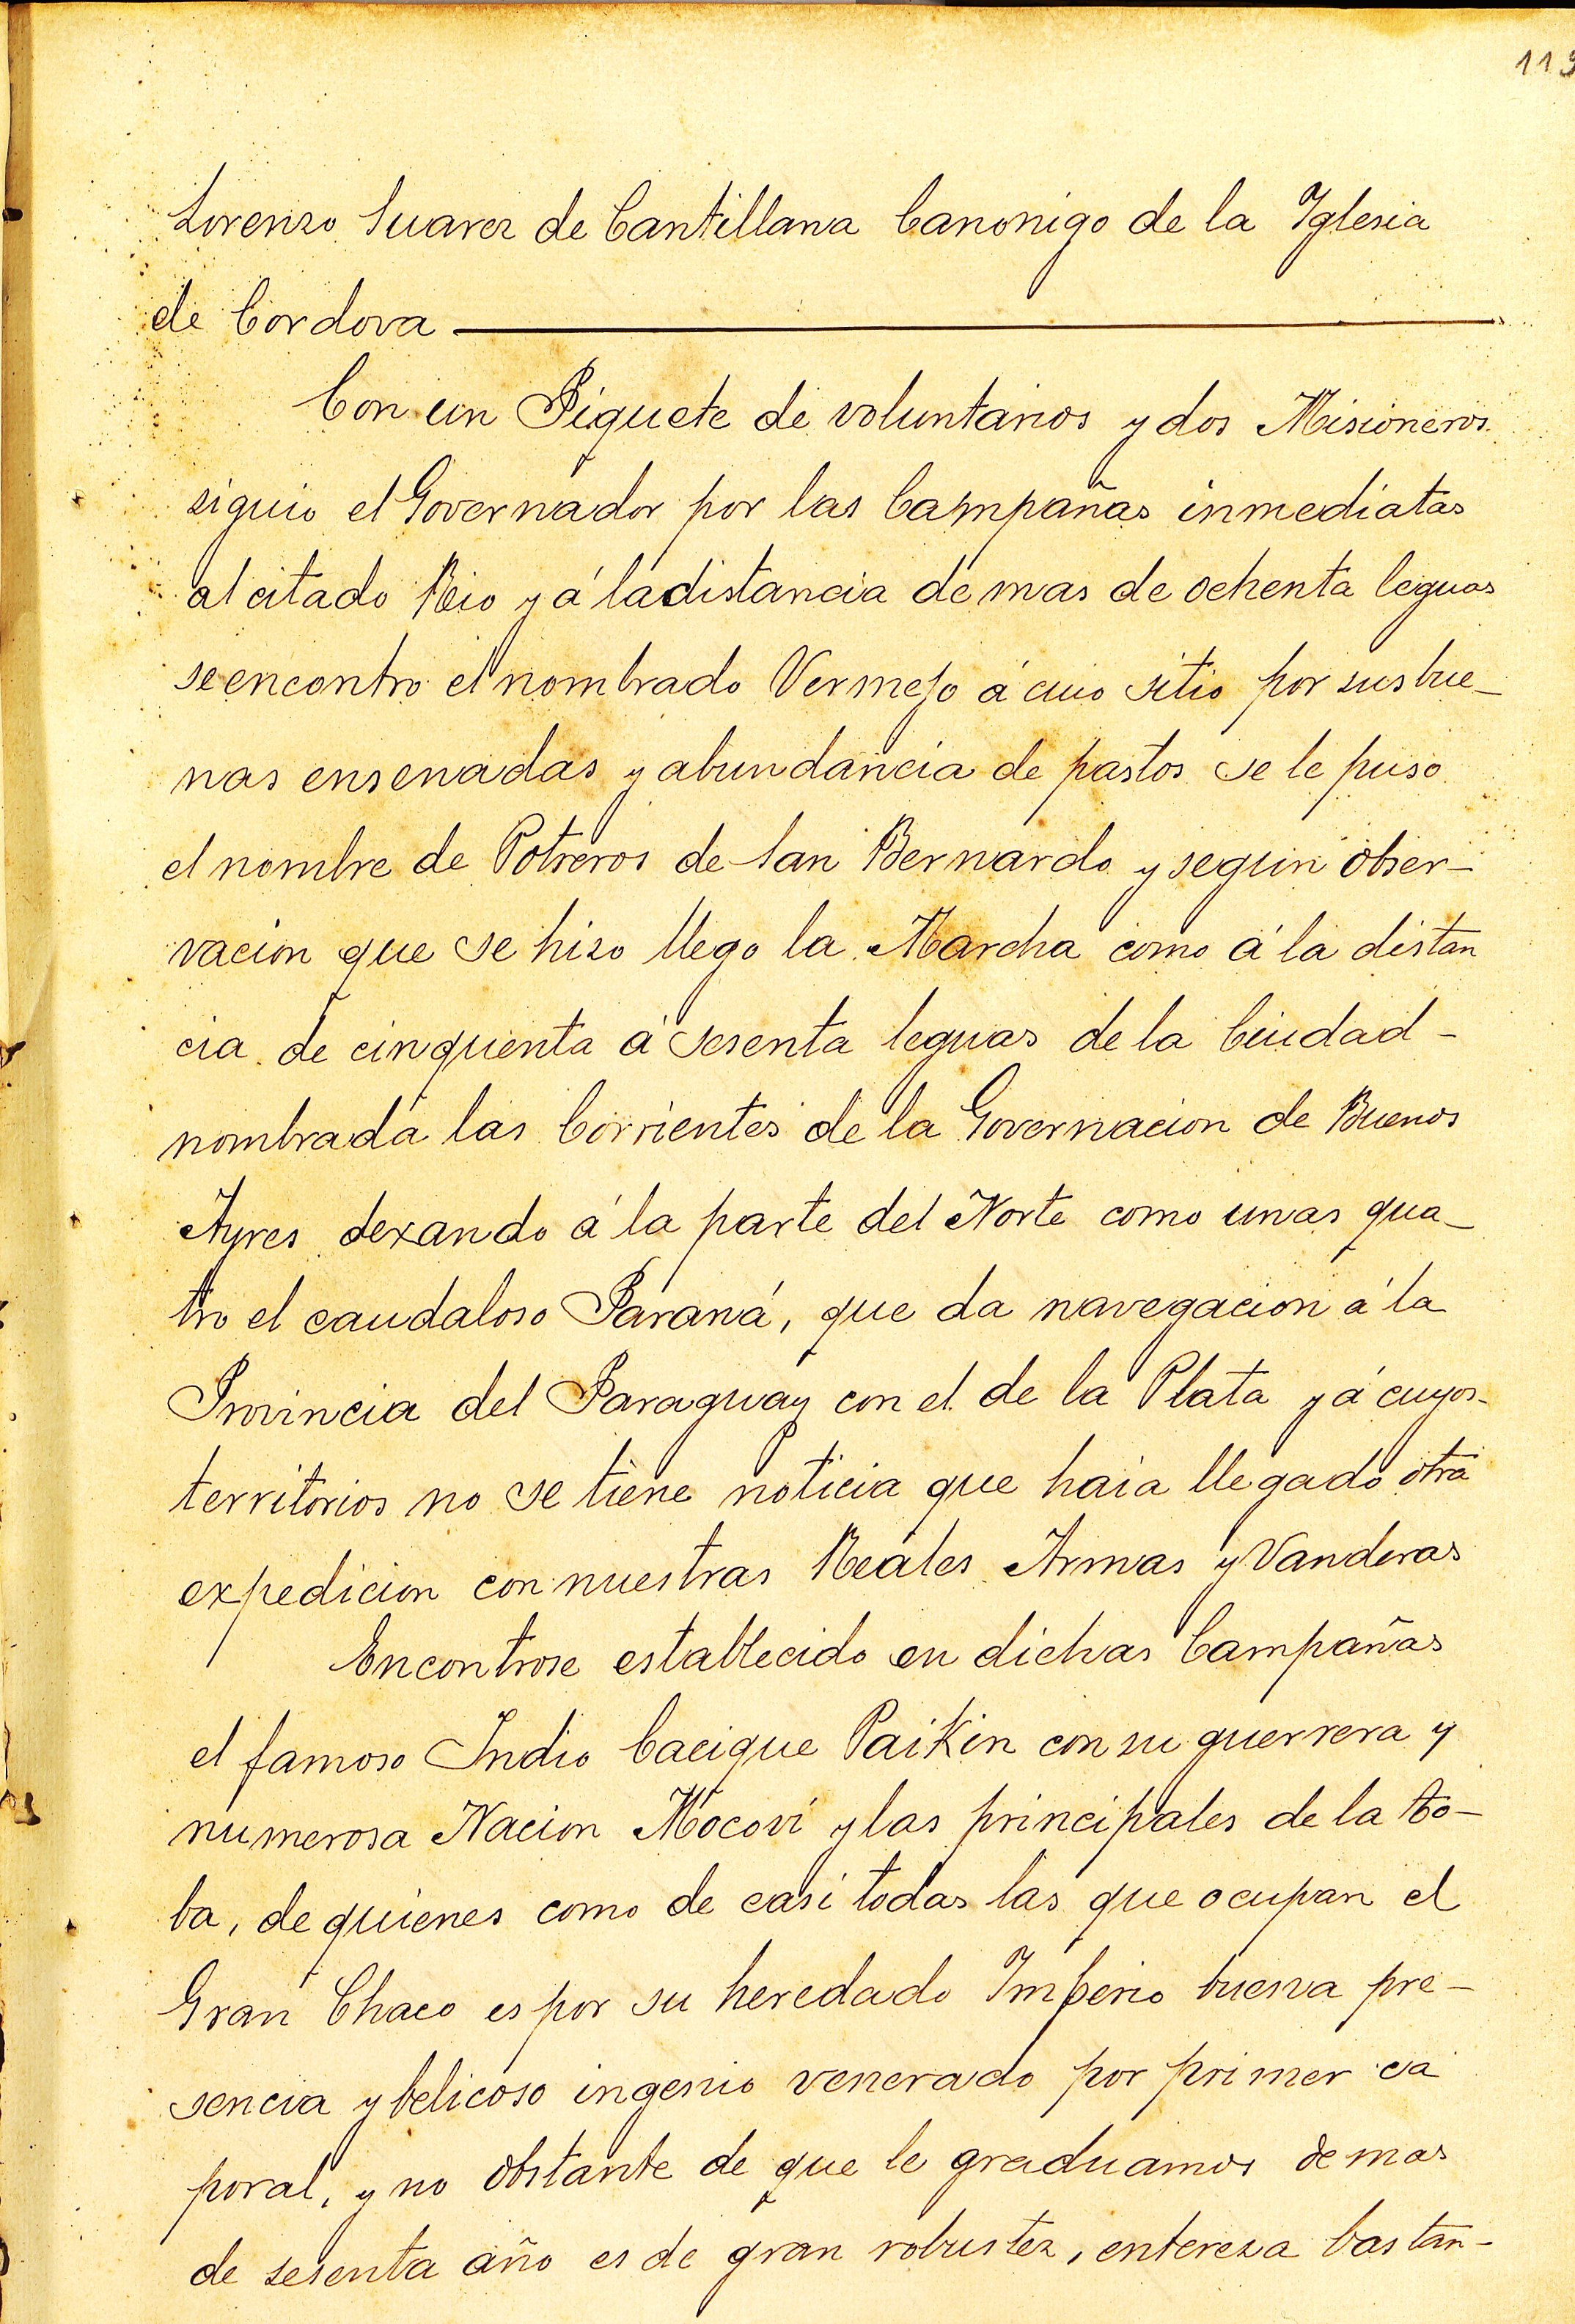 119
Lorenzo Suarez de Cantillana Canonigo de la Iglesia
de Cordova
Con un Piquete de voluntarios y dos Misioneros
siguio el Governador por las Campañas inmediatas
al citado Rio y á la distancia de mas de ochenta leguas
se encontro el nombrado Vermejo á cuio sitio por sus bue-
nas ensenadas y abundancia de pastos se le puso
el nombre de Potreros de San Bernardo y segun obser-
vacion que se hizo llego la Marcha como á la distan
cia de cinquenta á sesenta leguas de la Ciudad -
nombrada las Corrientes de la Governacion de Buenos
Ayres dexando á la parte del Norte como unas qua-
tro el caudaloso Paraná, que da navegacion á la
Provincia del Paraguay con el de la Plata y á cuyos
territorios no se tiene noticia que haia llegado otra
expedicion con nuestras Reales Armas y Vanderas
Encontrose establecido en dichas Campañas
el famoso Indio Cacique Paikin con su guerrera y
numerosa Nacion Mocoví y las principales de la to-
ba, de quienes como de casi todas las que ocupan el
Gran Chaco es por su heredado Imperio buena pre-
sencia y belicoso ingenio venerado por primer ca
poral, y no obstante de que le graduamos de mas
de sesenta año es de gran robustez, entereza bastan-